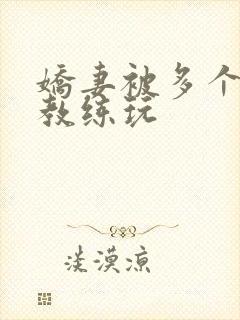 娇妻被多个
教练玩
淡漠凉